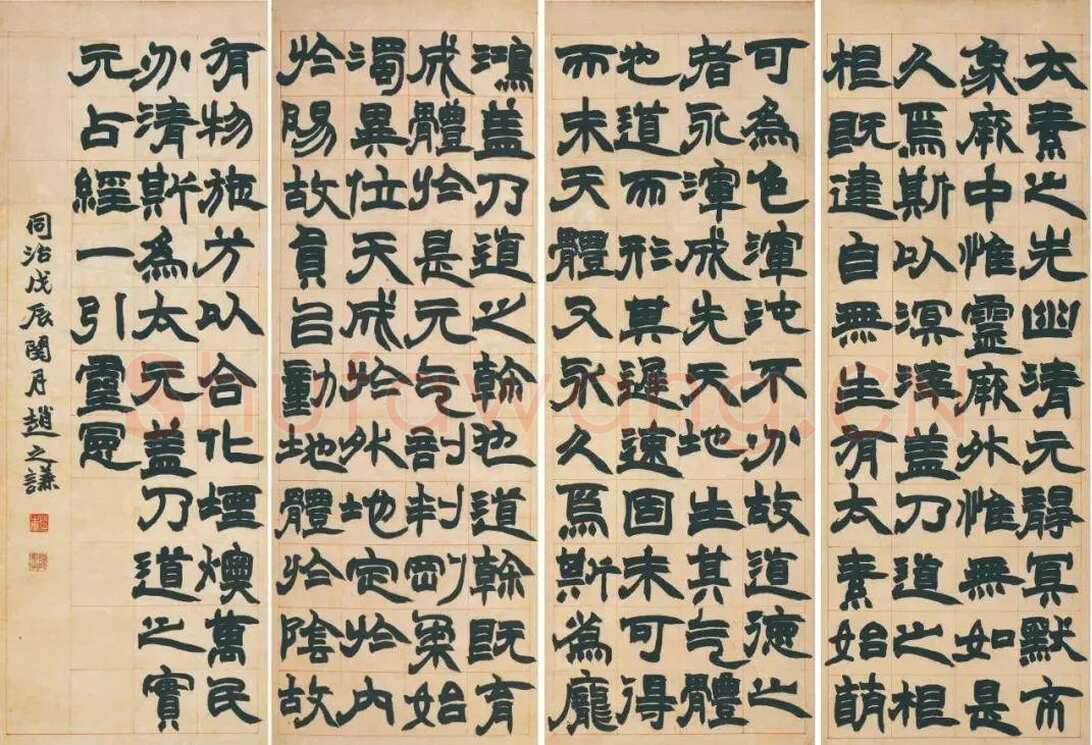 太素之先幽清元靜冥默
象厥中惟靈厥外惟無如是
久焉斯以溟涬蓋乃道之根
根既建自無生有太素始萌
可為色渾沌不分故道德之
者永渾成先天地生其气體
也道而形其遲速固未可得
而未天體又永久焉斯為龐
鴻蓋乃道之幹也道幹既育
成體於是元气剖判剛柔始
濁異位天成於外地定於內
於陽故員以動地體於陰故
有物施方以合化堙燠萬民
分清斯為太元蓋乃道之實
元占經一引靈憲
同治戊辰閏月趙之謙
Shufawang.CN